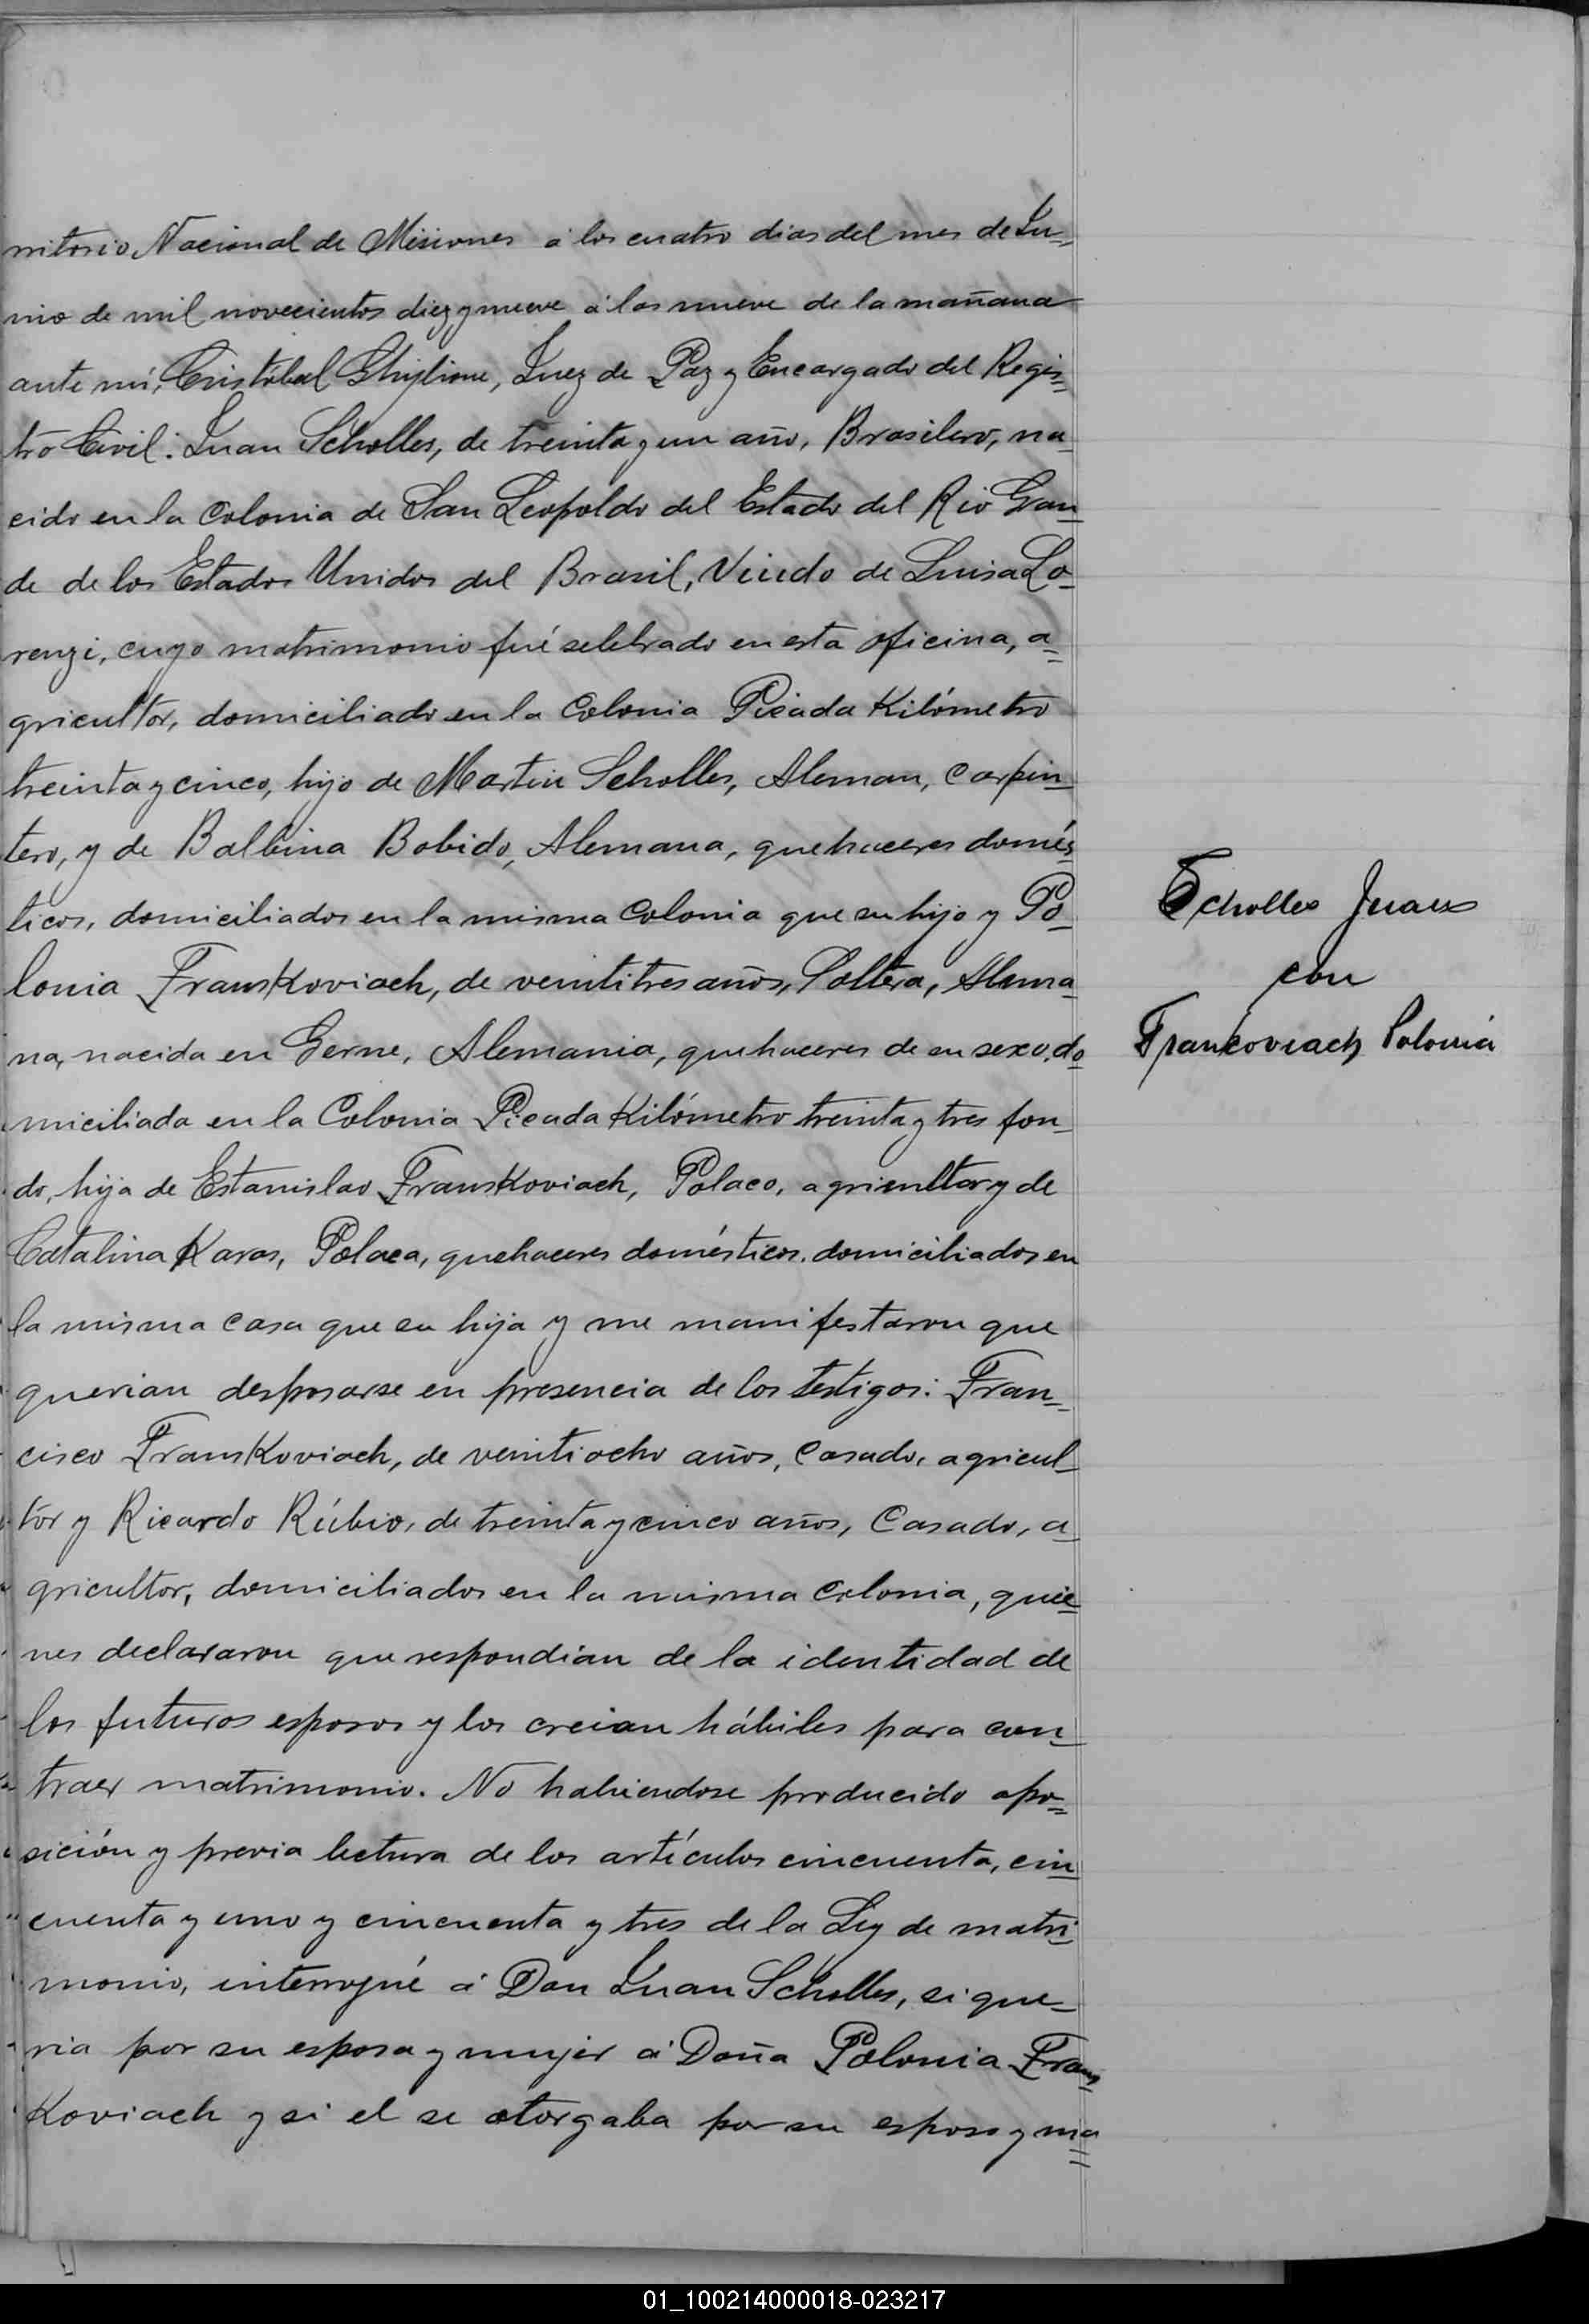 rritorio Nacional de Misiones á los cuatro dias del mes de Ju=
nio de mil novecientos diez y nueve á las nueve de la mañana
ante mi, Cristóbal Ghiglione, Juez de Paz y Encargado del Regis=
tro Civil: Juan Scholles, de treinta y un año, Brasilero, na-
cido en la Colonia de San Leopoldo del Estado del Rio Gran-
de de los Estados Unidos del Brasil, Viudo de Luisa Lo-
renzi, cuyo matrimonio fué selebrado en esta oficina, a=
gricultor, domiciliado en la Colonia Picada Kilómetro
treinta y cinco, hijo de Martin Scholles, Aleman, Carpin-
tero, y de Balbina Bobido, Alemana, quehaceres domés-
ticos, domiciliados en la misma Colonia que su hijo y Po-
lonia Franskoviach, de veintitres años, Soltera, Alema-
na, nacida en Gerne, Alemania, quehaceres de su sexo, do-
miciliada en la Colonia Picada Kilómetro treinta y tres fon-
do, hija de Estanislao Franskoviach, Polaco, agricultor y de
Catalina Karas, Polaca, quehaceres domésticos, domiciliados en
la misma casa que su hija y me manifestaron que
querian desposarse en presencia de los testigos: Fran=
cisco Franskoviach, de veintiocho años, Casado, agricul-
tor y Ricardo Rúbio, de treinta y cinco años, Casado, a-
gricultor, domiciliados en la misma Colonia, quie-
nes declararon que respondian de la identidad de
los futuros esposos y los creian hábiles para con-
traer matrimonio. No habiendose producido opo=
sición y previa lectura de los artículos cincuenta, cin-
cuenta y uno y cincuenta y tres de la Ley de matri-
monio, interrogué á Don Juan Scholles, si que-
ria por su esposa y mujer á Doña Polonia Frans-
Koviach y si el se otorgaba por su esposo y ma=
Scholles Juan
con
Francoviach Polonia
01_100214000018-023217